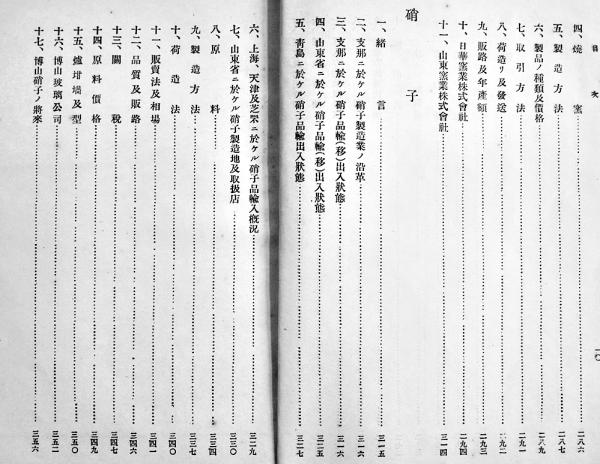 目次
一〇
四、燒窯 二八六
五、製造方法 二八七
六、製品ノ種類及價格 二八九
七、取引方法 二九一
八、荷造リ及發送 二九二
九、販路及年產額 二九三
十、日華窯業株式會社 二九四
十一、山東窯業株式會社 三一四
硝子
一、緒言 三一五
二、支那ニ於ケル硝子製造業ノ沿革 三一六
三、支那ニ於ケル硝子品輸(移)出入狀態 三一六
四、山東省ニ於ケル硝子品輸(移)出入狀態 三二五
五、靑島ニ於ケル硝子品輸出入狀態 三二七
六、上海、天津及芝罘ニ於ケル硝子品輸入槪況 三二九
七、山東省ニ於ケル硝子製造地及取扱店 三三〇
八、原料 三三四
九、製造方法 三三七
十、荷造法 三四〇
十一、販賣法及相場 三四一
十二、品質及販路 三四六
十三、關稅 三四七
十四、原料價格 三四九
十五、爐坩堝及型 三五〇
十六、博山玻璃公司 三五二
十七、博山硝子ノ將來 三五六